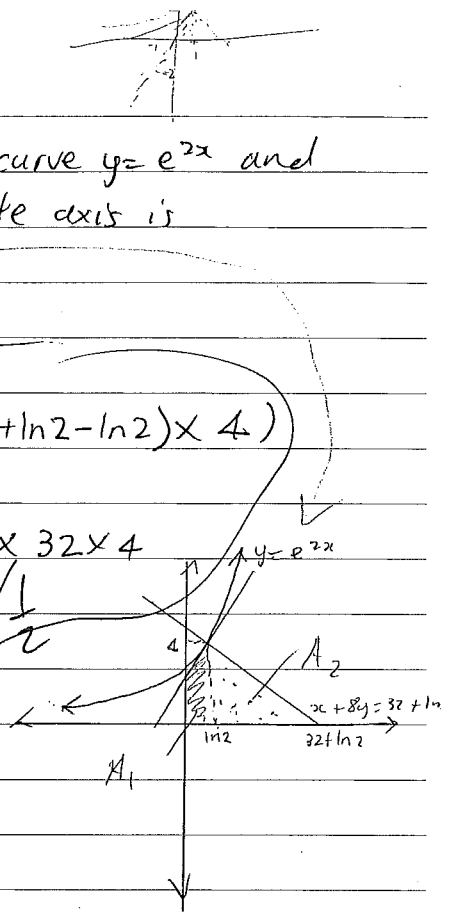 -1 1
-2
curve y= e^2x and
te axis is
+ln2-ln2)× 4)
× 32×4
1/2
y= e^2x
4
A₂
x +8y = 32 + ln
ln2
32+ln2
A₁